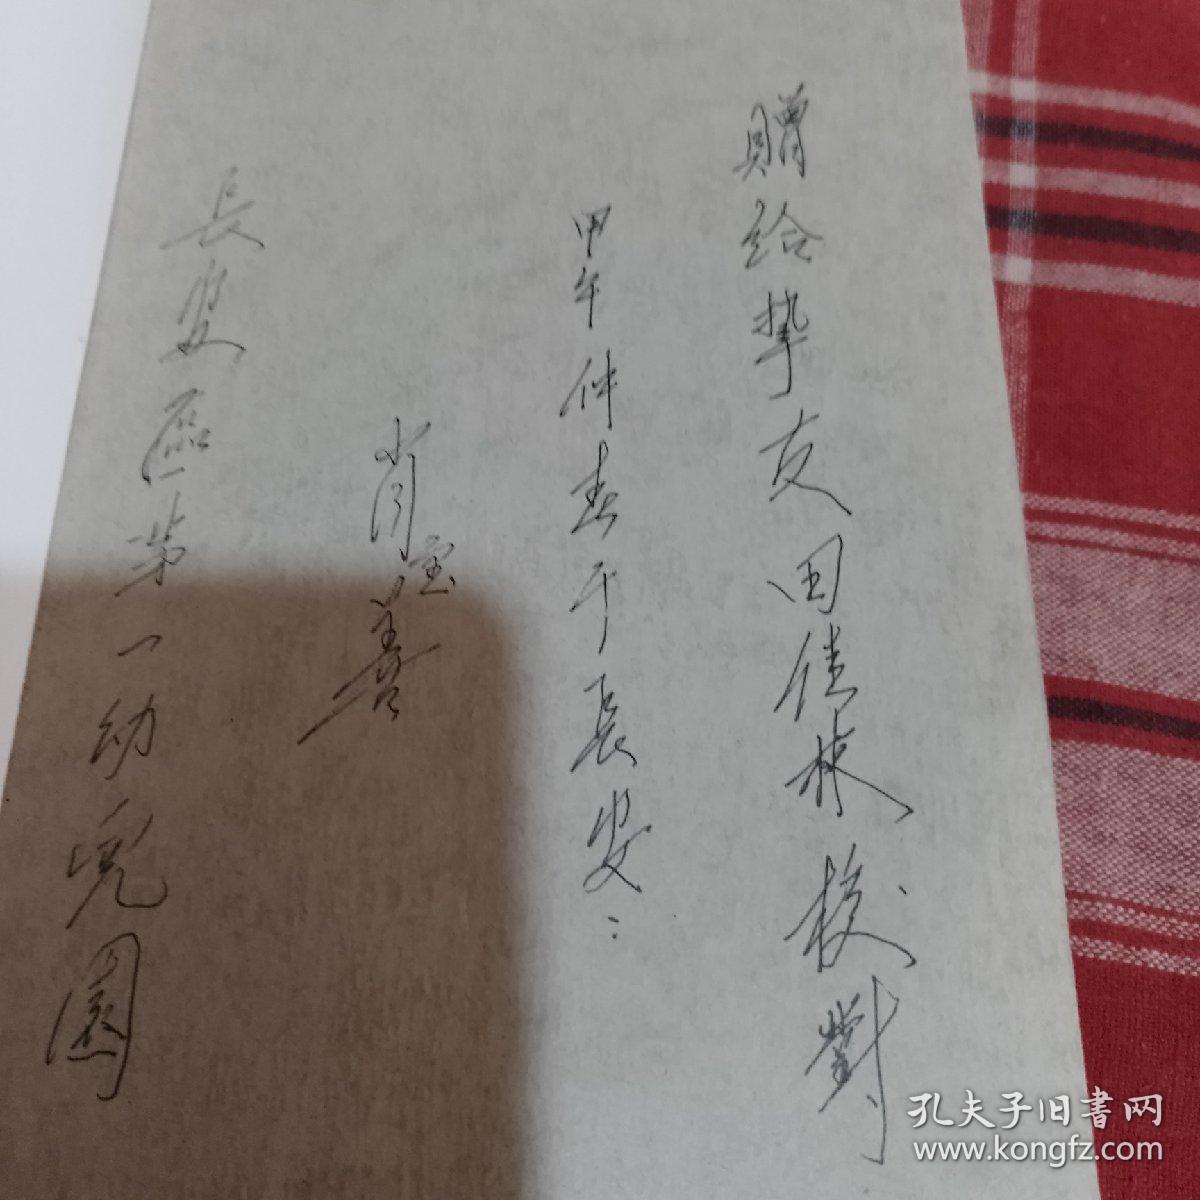 贈给挚友田佳林校對
甲午仲春于長安:
肖宝善
長安區第一幼兒園
孔夫子旧書网
www.kongfz.com